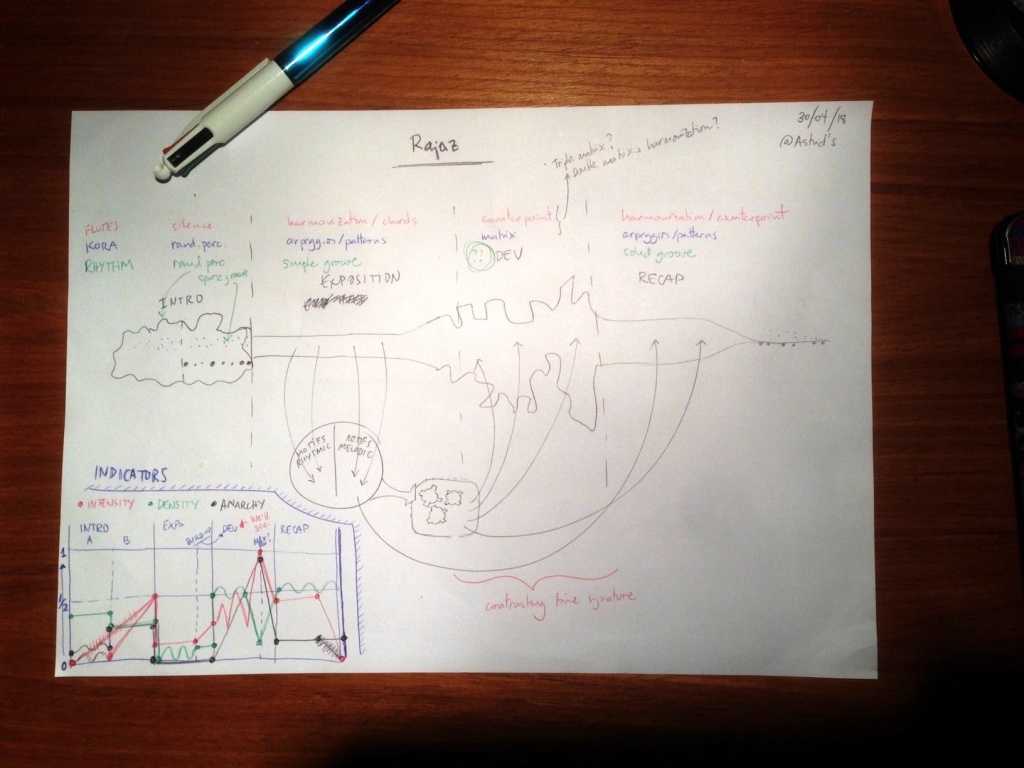 Rajaz
30/04/18
@Astrid's
Triple matrix?
Double matrix + harmonization?
FLUTES silence harmonization/chords counterpoint harmonization/counterpoint
KORA rand. perc. arpeggios/patterns matrix arpeggios/patterns
RHYTHM rand perc simple groove ?? DEV solid groove
sparse groove
INTRO EXPOSITION RECAP
MOTIFS RHYTHMIC
MOTIFS MELODIC
INDICATORS
INTENSITY DENSITY ANARCHY
INTRO EXPO DEV we'll see RECAP
A B BUILDUP MAX!
1
1/2
0
contrasting time signature